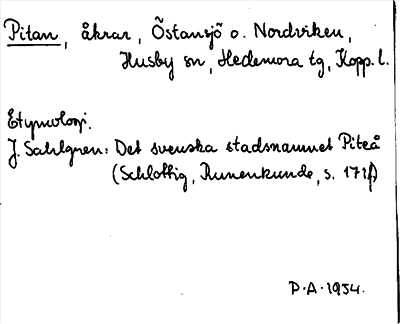 Pitan, åkrar, Östansjö o. Nordviken,
Husby sn, Hedemora tg, Kopp. l.
Etymologi.
J. Sahlgren: Det svenska stadsnamnet Piteå
(Schlottig, Runenkunde, s. 171f)
P·A·1954.